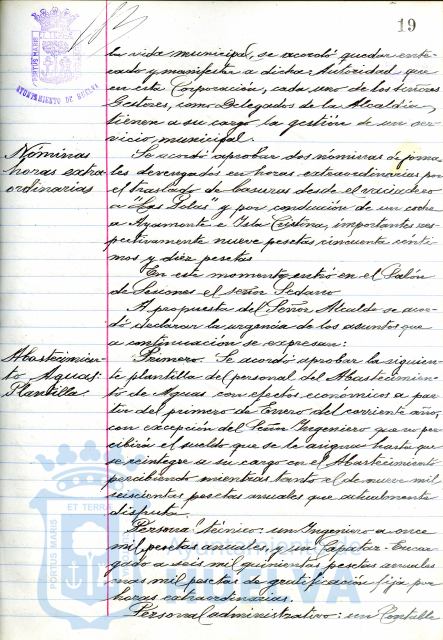 19
la vida municipal, se acordó quedar ente-
rado y manifestar a dicha Autoridad que
en esta Corporación, cada uno de los señores
Gestores, como Delegados de la Alcaldia,
tienen a su cargo la gestión de un ser-
vicio municipal.
Nóminas
horas extra-
ordinarias
Se acordó aprobar dos nóminas de jorna-
les devengados en horas extraordinarias por
el traslado de basuras desde el vaciadero
a "Las Colas" y por conducción de un coche
a Ayamonte e Isla Cristina, importantes res-
pectivamente nueve pesetas cincuenta cénti-
mos y diez pesetas
En este momento entró en el Salón
de Sesiones el señor Sedano
A propuesta del Señor Alcalde se acor-
dó declarar la urgencia de los asuntos que
a continuación se expresan:
Abastecimien-
to Aguas.
Plantilla.
Primero. Se acordó aprobar la siguien-
te plantilla del personal del Abastecimien-
to de Aguas con efectos económicos a par-
tir del primero de Enero del corriente año,
con excepción del Señor Ingeniero que no per-
cibirá el sueldo que se le asigna hasta que
se reintegre a su cargo en el Abastecimiento
percibiendo mientras tanto el de nueve mil
seiscientas pesetas anuales que actualmente
disfruta.
Personal técnico: un Ingeniero a once
mil pesetas anuales, y un Capataz-Encar-
gado a seis mil quinientas pesetas anuales
mas mil pesetas de gratificación fija por
horas extraordinarias.
Personal administrativo: un Contable
PORTUS MARIS
ET TERRAE
AYUNTAMIENTO DE HUELVA
PORTUS MARIS
ET TERRA
Ayuntamiento de
HUELVA